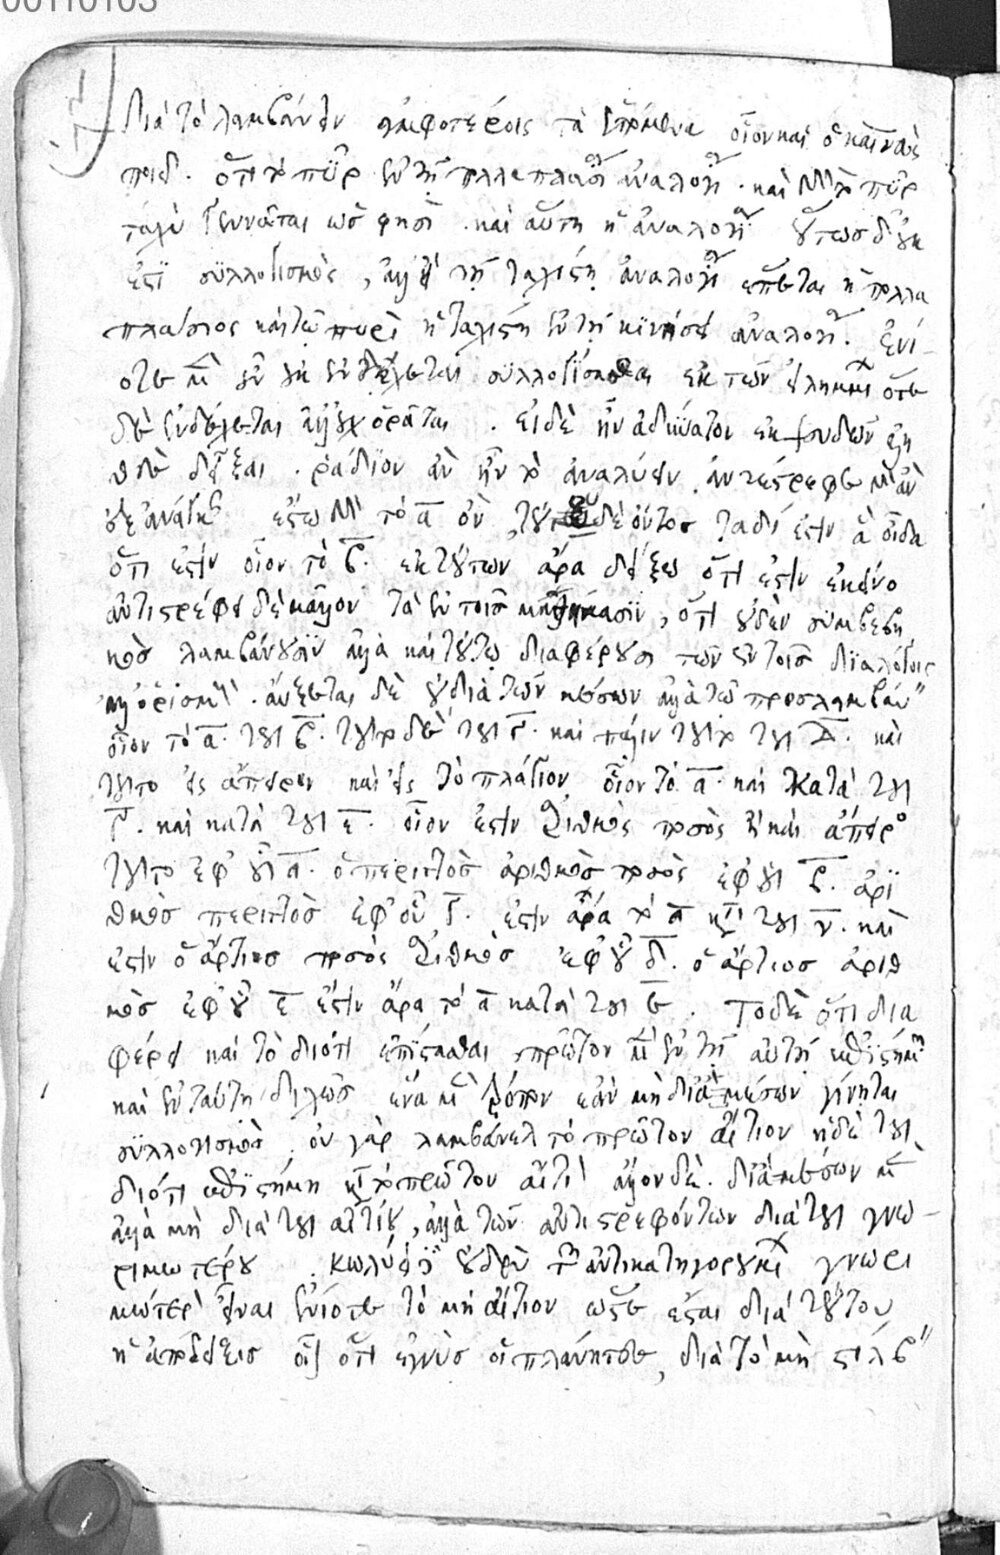 00110103
διὰ τὸ λαμβάνειν ἀμφοτέροις τὰ ἑπόμενα οἷον καὶ ὁ καινεὺς
ποιεῖ. ὅτι τὸ πῦρ ἐν τῇ πολλαπλασί ἀναλογί. καὶ γὰρ τὸ πῦρ
ταχὺ γεννᾶται ὥς φησι. καὶ αὕτη ἡ ἀναλογί οὕτως δ' οὐκ
ἔστι συλλογισμὸς, ἀλλ' εἰ τῇ ταχίστῃ ἀναλογί ἕπεται ἡ πολλα
πλάσιος καὶ τῷ πυρὶ ἡ ταχίστη ἐν τῇ κινήσει ἀναλογί. ἐνί
οτε μὲν οὖν οὐκ ἐνδέχεται συλλογίσασθαι ἐκ τῶν εἰλημμένων ὁτὲ
δὲ ἐνδέχεται ἀλλ' οὐχ ὁρᾶται. εἰ δὲ ἦν ἀδύνατον ἐκ ψευδῶν ἀλη
θὲς δεῖξαι. ῥάδιον ἂν ἦν τὸ ἀναλύειν. ἀντέστρεφε γὰρ ἂν
ἐξ ἀνάγκης ἔστω γὰρ τὸ α ὂν τούτου δὲ ὄντος ταδί ἐστιν ἃ οἶδα
ὅτι ἐστὶν οἷον τὸ β. ἐκ τούτων ἄρα δείξω ὅτι ἐστὶν ἐκεῖνο
ἀντιστρέφει δὲ μᾶλλον τὰ ἐν τοῖς μαθήμασιν, ὅτι οὐδὲν συμβεβη
κὸς λαμβάνουσιν ἀλλὰ καὶ τούτῳ διαφέρουσι τῶν ἐν τοῖς διαλόγοις
ἀλλ' ὁρισμοὺς. αὔξεται δὲ οὐ διὰ τῶν μέσων ἀλλὰ τῷ προσλαμβάν
οἷον τὸ α τοῦ β. τοῦτο δὲ τοῦ γ. καὶ πάλιν τοῦτο τοῦ δ. καὶ
τοῦτο εἰς ἄπειρον καὶ εἰς τὸ πλάγιον οἷον τὸ α καὶ κατὰ τοῦ
γ. καὶ κατὰ τοῦ ε. οἷον ἔστιν ἀριθμὸς ποσὸς ἢ καὶ ἄπειρο
τοῦτο ἐφ' ᾧ α. ὁ περιττὸς ἀριθμὸς ποσὸς ἐφ' οὗ β. ἀρι
θμὸς περιττὸς ἐφ' οὗ γ. ἔστιν ἄρα τὸ α κατὰ τοῦ γ. καὶ
ἔστιν ὁ ἄρτιος ποσὸς ἀριθμὸς ἐφ' οὗ δ. ὁ ἄρτιος ἀριθ
μὸς ἐφ' οὗ ε ἔστιν ἄρα τὸ α κατὰ τοῦ ε. Τὸ δὲ ὅτι δια
φέρει καὶ τὸ διότι ἐπίστασθαι πρῶτον μὲν ἐν τῇ αὐτῇ ἐπιστήμῃ
καὶ ἐν ταύτῃ διχῶς ἕνα μὲν τρόπον ἐὰν μὴ δι' ἀμέσων γίνηται
συλλογισμὸς. οὐ γὰρ λαμβάνει τὸ πρῶτον αἴτιον ἡ δὲ τοῦ
διότι ἐπιστήμη κατὰ τὸ πρῶτον αἴτι ἄλλον δὲ. δι' ἀμέσων μὲν
ἀλλὰ μὴ διὰ τοῦ αἰτίου, ἀλλὰ τῶν ἀντιστρεφόντων διὰ τοῦ γνω
ριμωτέρου. κωλύει οὐδὲν τῶν ἀντικατηγορουμένων γνωρι
μώτερον εἶναι ἐνίοτε τὸ μὴ αἴτιον ὥστε ἔσται διὰ τούτου
ἡ ἀπόδειξις οἷον ὅτι ἐγγὺς οἱ πλάνητες, διὰ τὸ μὴ στίλβ